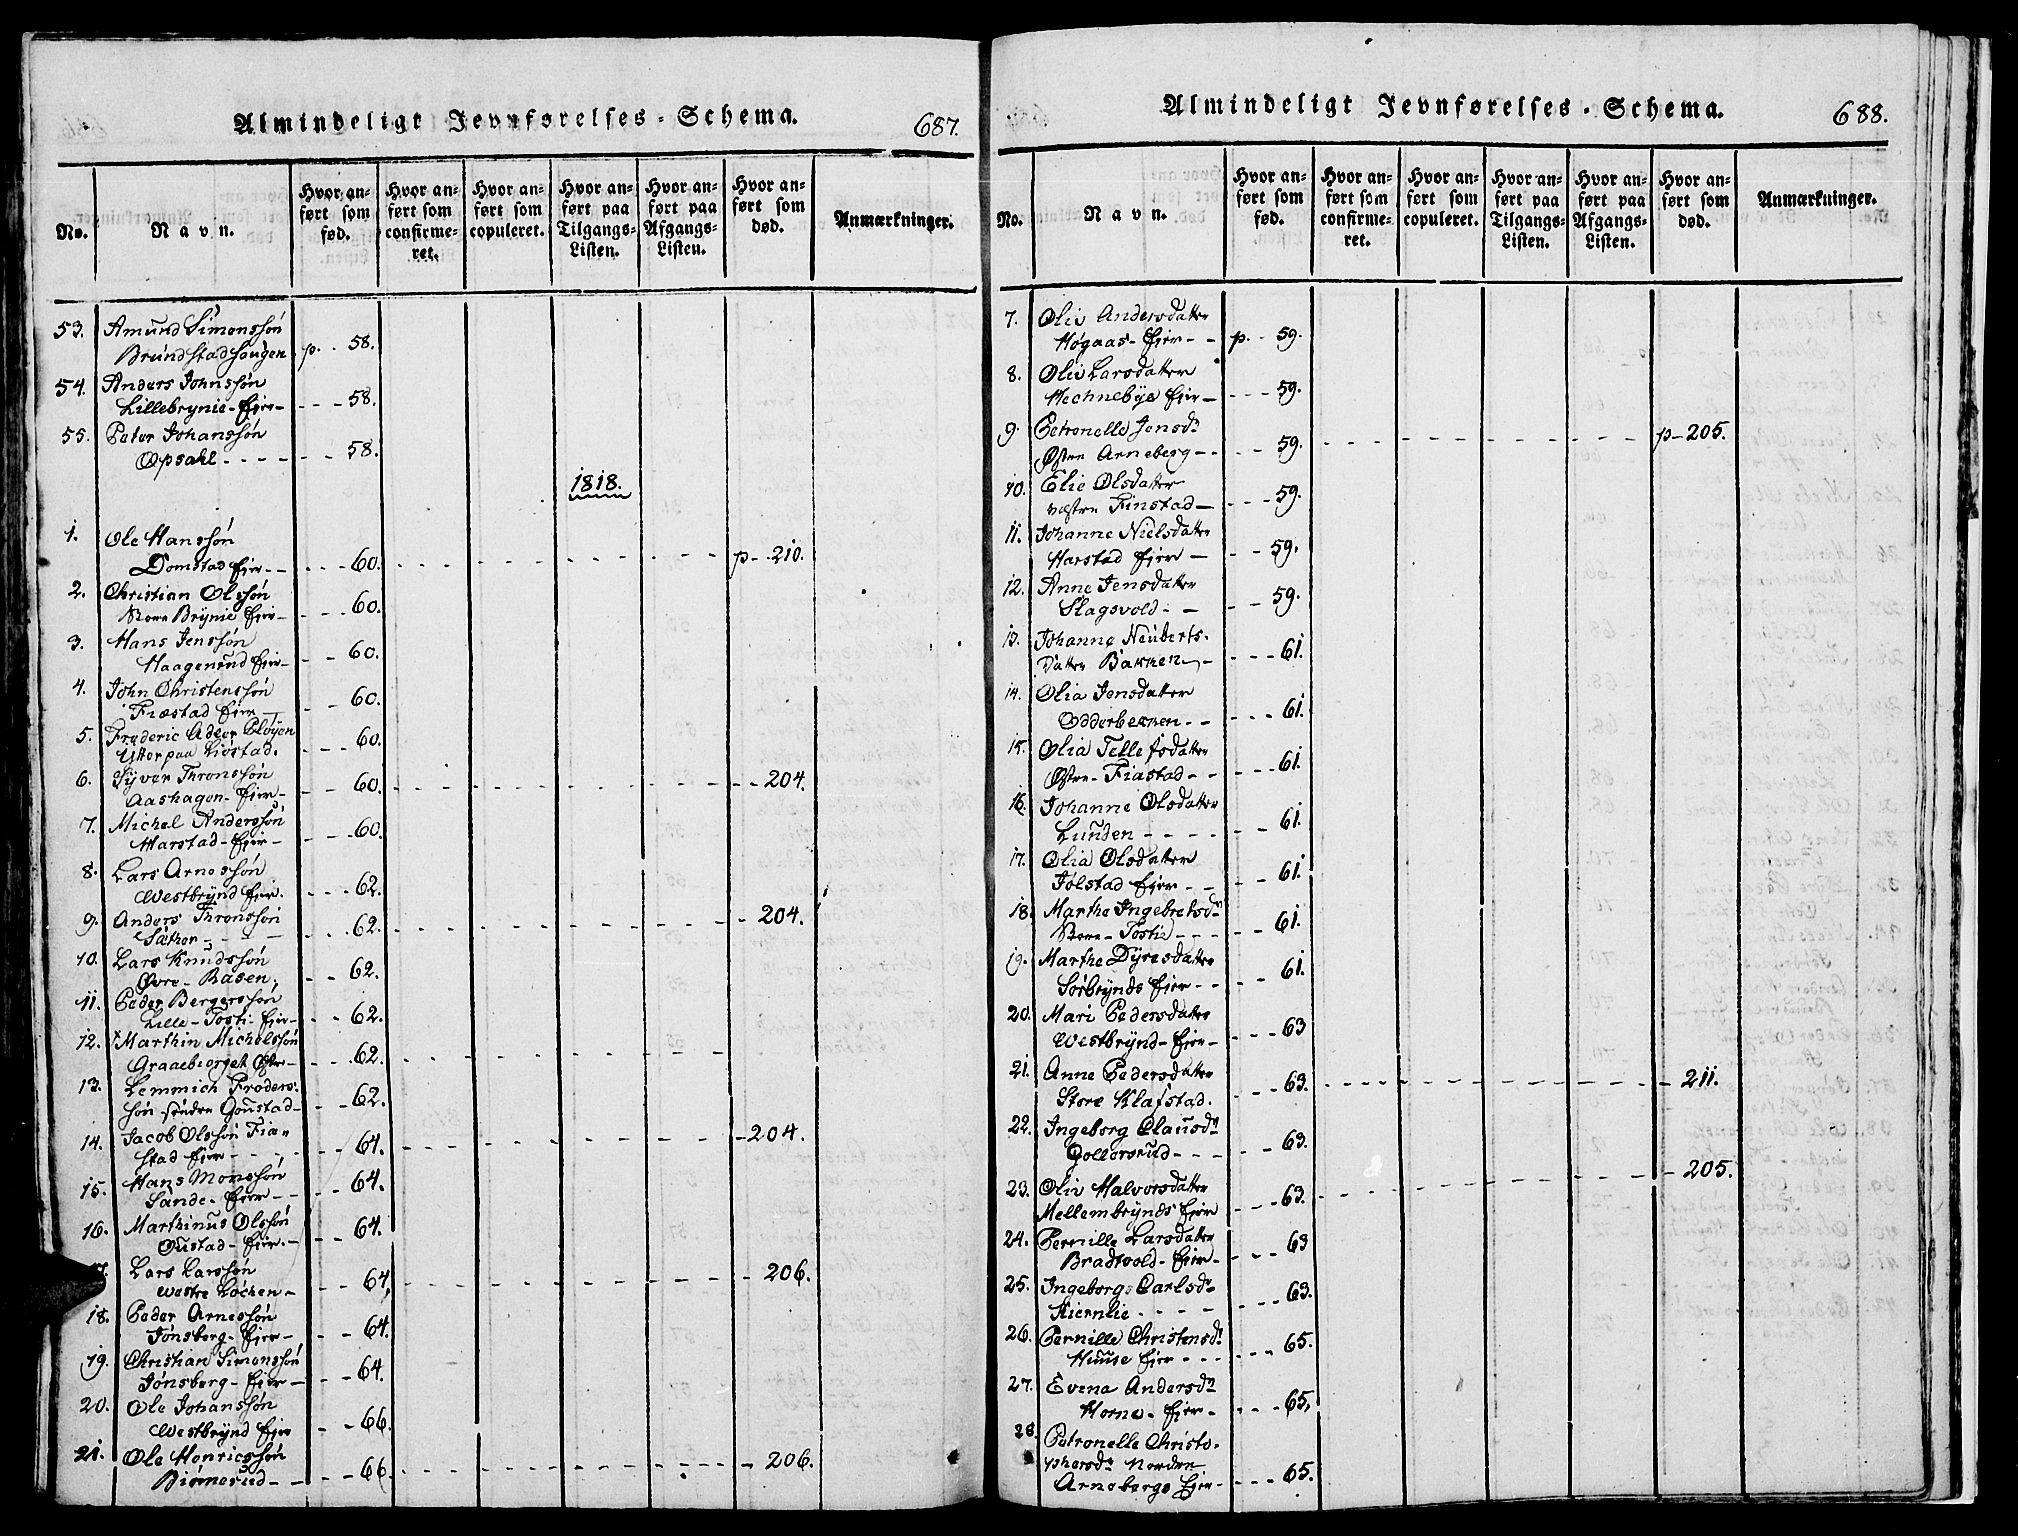 Almindeligt Jevnførelses-Schema.
687.
No.
Navn.
Hvor anført som fød.
Hvor anført som confirmeret.
Hvor anført som copuleret.
Hvor anført paa Tilgangs-Listen.
Hvor anført paa Afgangs-Listen.
Hvor anført som død.
Anmærkninger.
53. Amund Simonssøn
Brundstadhaugen p. . 58.
54. Anders Johnssøn
Lillebrynie-Ejer- - - - 58.
55. Peter Johanssøn
Opsahl - - - - - - 58.
1818.
1. Ole Hanssøn
Domstad Ejer - - - - - 60. p - . 210.
2. Christian Olssøn
Store Brynie Ejer - - - - 60.
3. Hans Jenssøn
Haagenrud Ejer - - - 60.
4. John Christenssøn
Fiæstad Ejer - - - 60.
5. Frederic Adler Pløyen
Ytterpaa Liøstad. - - - 60.
6. Syver Thronssøn
Aashagen-Ejer - - - 60. - - 204.
7. Michel Anderssøn
Harstad-Ejer - - - - 60.
8. Lars Arnessøn
Westbrynd Ejer. - - - 62.
9. Anders Thronssøn
Sæther - - - - 62. - 204.
10. Lars Knudssøn
Øvre-Basen. - - 62.
11. Peder Bergerssøn
Lille-Tosti-Ejer - - - 62.
12. Marthin Michelssøn
Graaebierget Østre - - - 62.
13. Lemmich Froders-
søn søndre Goustad - - - 62.
14. Jacob Olssøn Fia-
stad Ejer - - - - 64. - 204.
15. Hans Monssøn
Sande-Ejer - - - - 64.
16. Marthinus Olssøn
Oustad-Ejer. - - - 64.
Lars Larssøn
Westre Løchen - - - 64. - 206.
18. Peder Arnessøn
Jønsberg-Ejer - - - 64.
19. Christian Simonssøn
Jønsberg-Ejer - - - 64.
20. Ole Johanssøn
Westbrynd Ejer - - 66.
21. Ole Henricssøn
Biørnerud - - - - 66. - 206.
Almindeligt Jevnførelses-Schema.
688.
No.
Navn.
Hvor anført som fød.
Hvor anført som confirmeret.
Hvor anført som copuleret.
Hvor anført paa Tilgangs-Listen.
Hvor anført paa Afgangs-Listen.
Hvor anført som død.
Anmærkninger.
7. Oliv Andersdatter
Høgaas-Ejer - - p. - 59.
8. Oliv Larsdatter
Hechnebye Ejer - - - - 59.
9. Petronelle Jensdr
Østre Arneberg - - - - 59. p - 205.
10. Elie Olsdatter
Næstre Finstad - - - - 59.
11. Johanne Nielsdatter
Harstad Ejer - - - 59.
12. Anne Jensdatter
Slagsvold - - - - 59.
13. Johanne Neuberts-
Datter Bakken - - - - 61.
14. Olia Jensdatter
Odderbekken - - - - - 61.
15. Olia Tellefsdatter
Østre-Fiastad - - - - - 61.
16. Johanne Olsdatter
Lunden - - - - - - 61.
17. Olia Olsdatter
Jølstad Ejer - - - - 61.
18. Marthe Ingebretsdr
Store-Tostie - - - - - 61.
19. Marthe Dyresdatter
Sørbrynds Ejer - - - - 61.
20. Mari Pedersdatter
Westbrynd-Ejer - - - - 63
21. Anne Pedersdatter
Store Klafstad. - - 63. - 211.
22. Ingeborg Clausdr
Gollersrud - - - - - 63.
23. Oliv Halvorsdatter
Mellembrynds Ejer - - - 63. - 205.
24. Pernille Larsdatter
Bradtvold-Ejer - - - - 63
25. Ingeborg Carlsdr
Kiernlie - - - - - - - 63.
26. Pernille Christensdr
Huuse Ejer - - - - - - 65.
27. Evena Andersdr
Horne-Ejer - - - - 65.
28. Petronelle Christo-
phersdr Nordre
Arneberge Ejer - - - - 65.